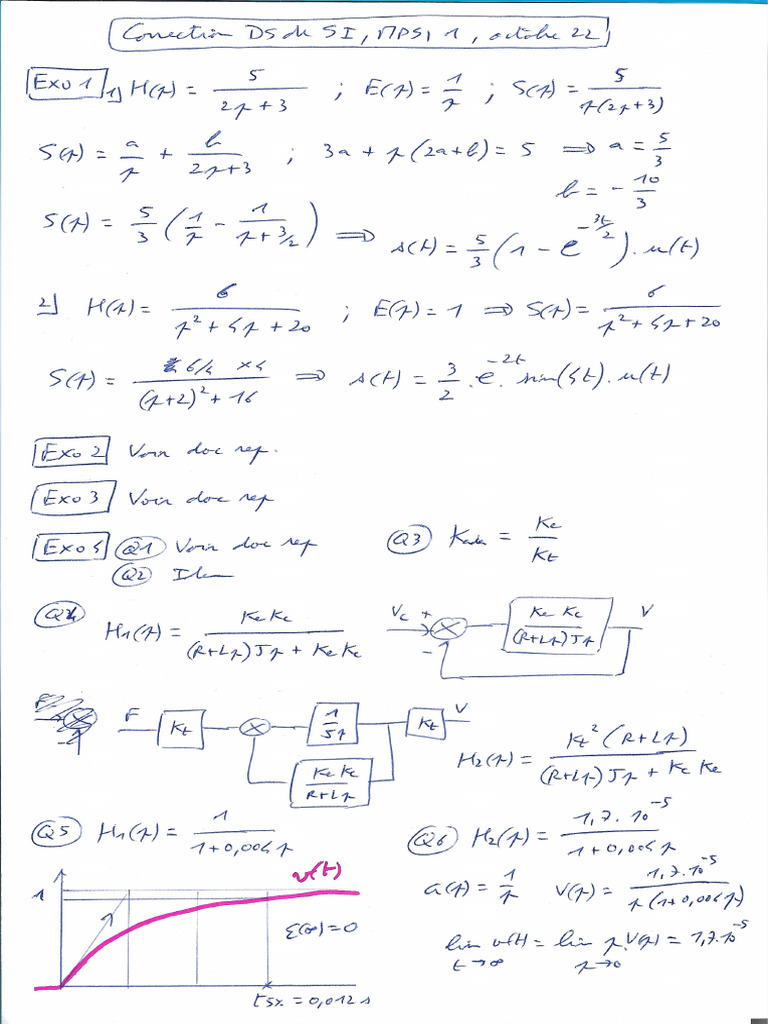 Correction DS de SI, MPSI 1, octobre 22
Exo 1 1) H(p) = 5/(2p+3) ; E(p) = 1/p ; S(p) = 5/(p(2p+3))
S(p) = a/p + b/(2p+3) ; 3a + p(2a+b) = 5 ⟹ a = 5/3
b = -10/3
S(p) = 5/3 (1/p - 1/(p+3/2)) ⟹ s(t) = 5/3 (1 - e^(-3t/2)) . u(t)
2) H(p) = 6/(p²+4p+20) ; E(p) = 1 ⟹ S(p) = 6/(p²+4p+20)
S(p) = (6/4 ×4)/((p+2)²+16) ⟹ s(t) = 3/2 . e^(-2t) . sin(4t) . u(t)
Exo 2 Voir doc rep.
Exo 3 Voir doc rep
Exo 4 Q1 Voir doc rep Q3 = Ke/Kt
Q2 Idem
Q4 H1(p) = KeKc/((R+Lp)Jp + KeKc) Vc + - Ke Kc/((R+Lp)Jp) V
F Kt 1/Jp Kt V
Ke Kc/(R+Lp) H2(p) = Kt²(R+Lp)/((R+Lp)Jp + Kc Ke)
Q5 H1(p) = 1/(1+0,004p) Q6 H2(p) = 1,7.10^-5/(1+0,004p)
1 v(t) a(p) = 1/p V(p) = 1,7.10^-5/(p(1+0,004p))
ε(∞) = 0 lim t→∞ v(t) = lim p→0 p.V(p) = 1,7.10^-5
t5% = 0,012 s